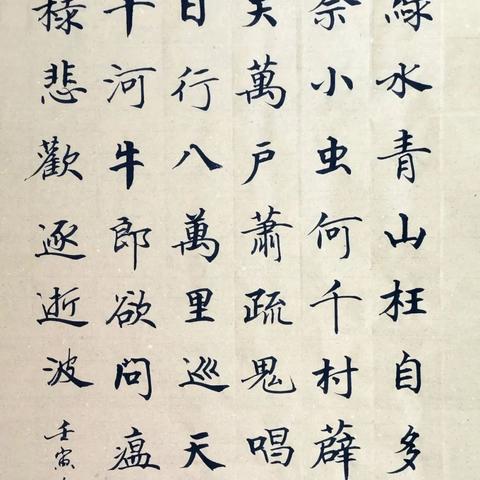 綠水青山枉自多
奈小虫何千村薜
矢萬户蕭疏鬼唱
日行八萬里巡天
千河牛郎欲問瘟
樣悲歡逐逝波
壬寅